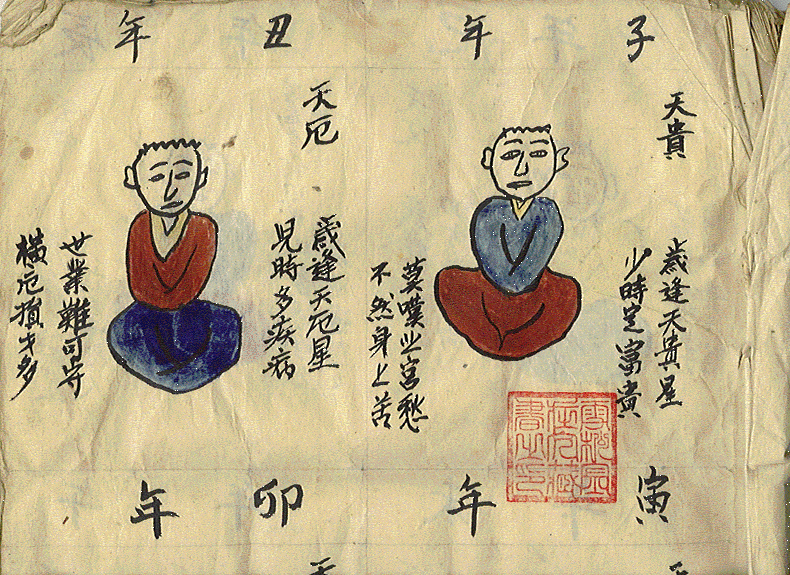 子年
天貴
歳逢天貴星
少時定富貴
莫嘆宮愁
不然身上苦
丑年
天厄
歳逢天厄星
児時多疾病
世業難可守
橫厄損才多
寅年
卯年